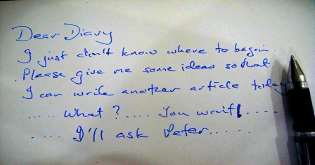 Dear Diary
I just don't know where to begin
Please give me some ideas so that
I can write another article today
..... What ? ..... You wait! .....
..... I'll ask Peter .....